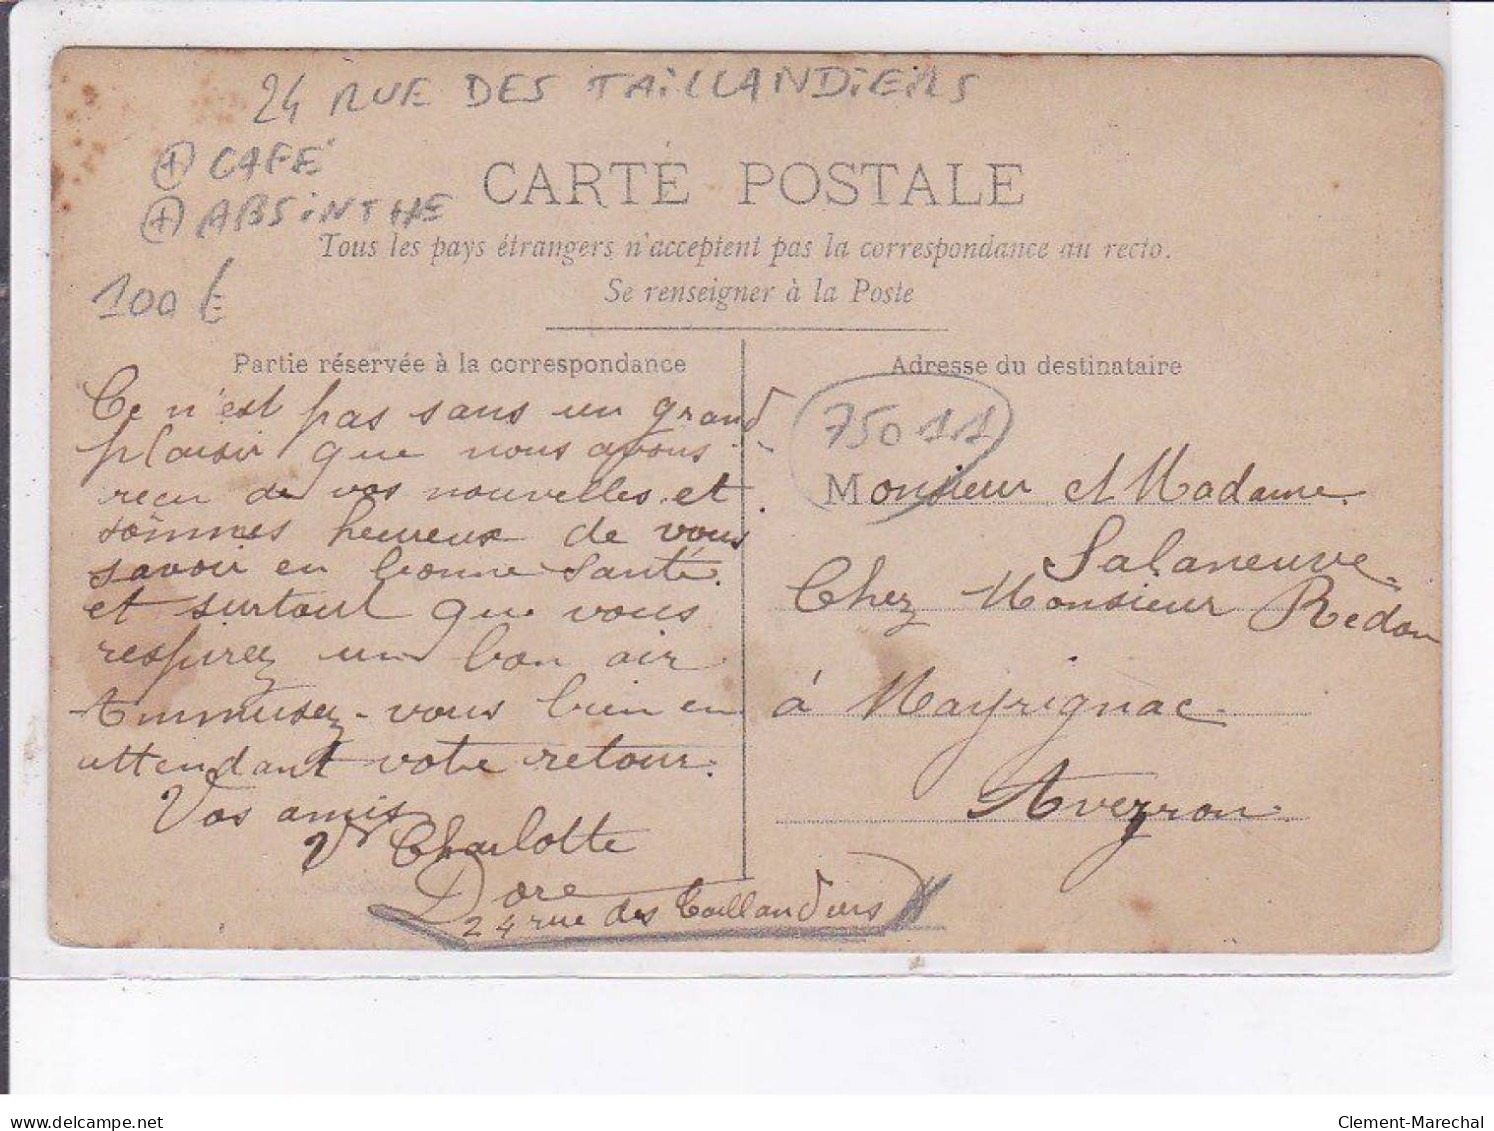 24 RUE DES TAILLANDIERS
+ CAFÉ
+ ABSINTHE
100 €
CARTE POSTALE
Tous les pays étrangers n'acceptent pas la correspondance au recto.
Se renseigner à la Poste
Partie réservée à la correspondance
Ce n'est pas sans un grand
plaisir que nous avons
reçu de vos nouvelles et
sommes heureux de vous
savoir en bonne santé.
et surtout que vous
respirez un bon air
Ammusez-vous bien en
attendant votre retour.
Vos amis
Charlotte
Dore
24 rue des Taillandiers
Adresse du destinataire
75011
Monsieur et Madame
Salaneuve
Chez Monsieur Redon
à Mayrignac
Aveyron
delcampe.net
Clement-Marechal